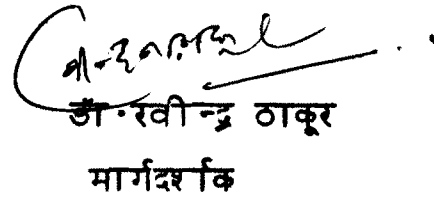 डॉ. रवीन्द्र ठाकूर
मार्गदर्शक